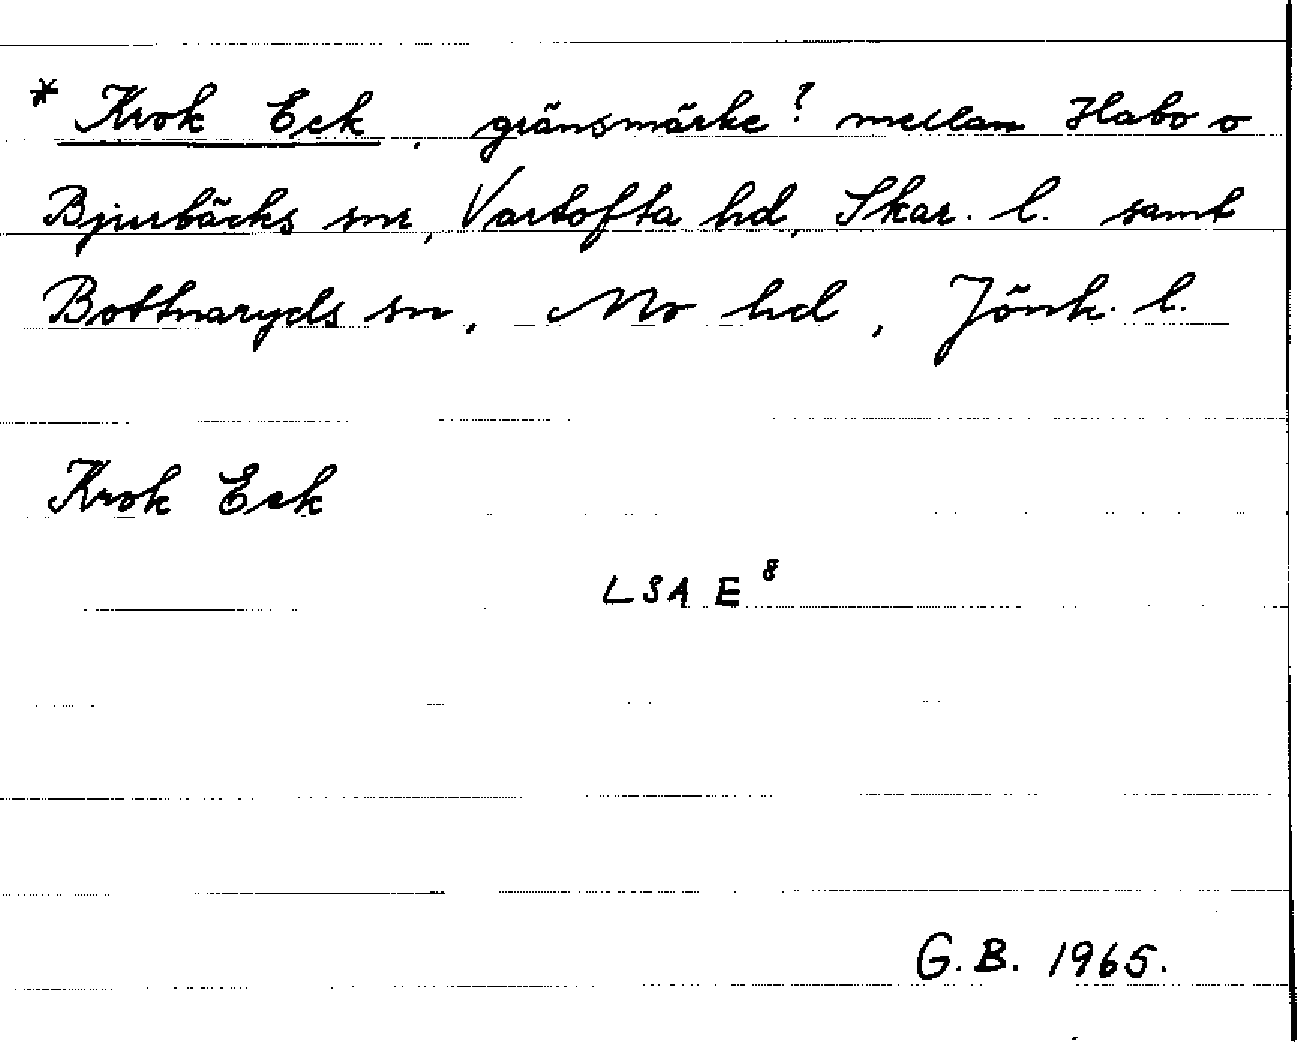 * Krok Eck, gränsmärke? mellan Habo o
Bjurbäcks snr, Vartofta hd, Skar. l. samt
Bottnaryds sn, Mo hd, Jönk. l.
Krok Eck
LSA E⁸
G.B. 1965.